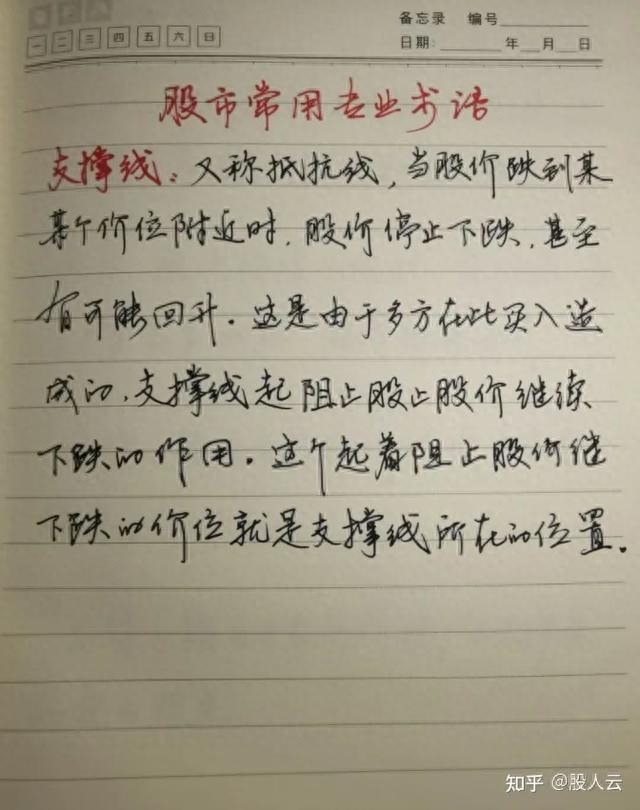 备忘录 编号
一 二 三 四 五 六 日
日期: 年 月 日
股市常用专业术语
支撑线：又称抵抗线，当股价跌到某
某个价位附近时，股价停止下跌，甚至
有可能回升。这是由于多方在此买入造
成的，支撑线起阻止股止股价继续
下跌的作用。这个起着阻止股价继
下跌的价位就是支撑线所在的位置。
知乎 @股人云